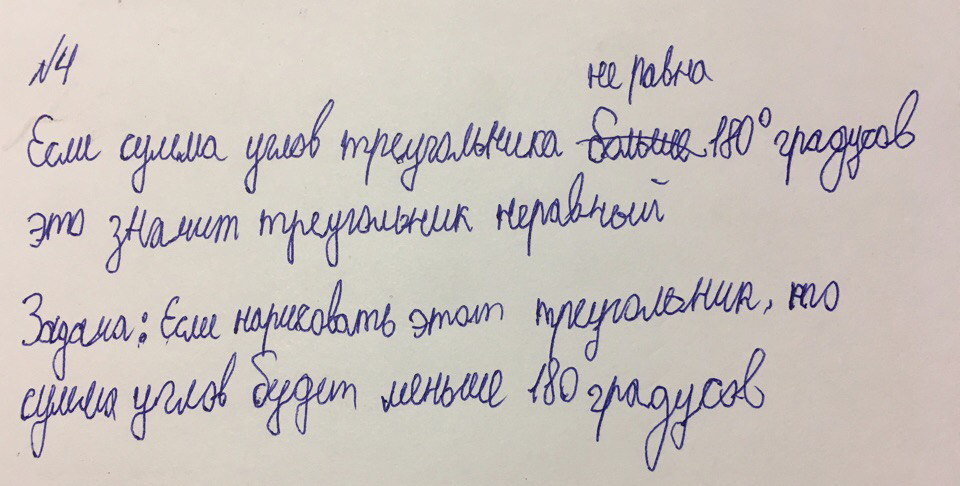 №4
не равна
Если сумма углов треугольника больше 180° градусов
это значит треугольник неравный
Задача: Если нарисовать этот треугольник, то
сумма углов будет меньше 180 градусов